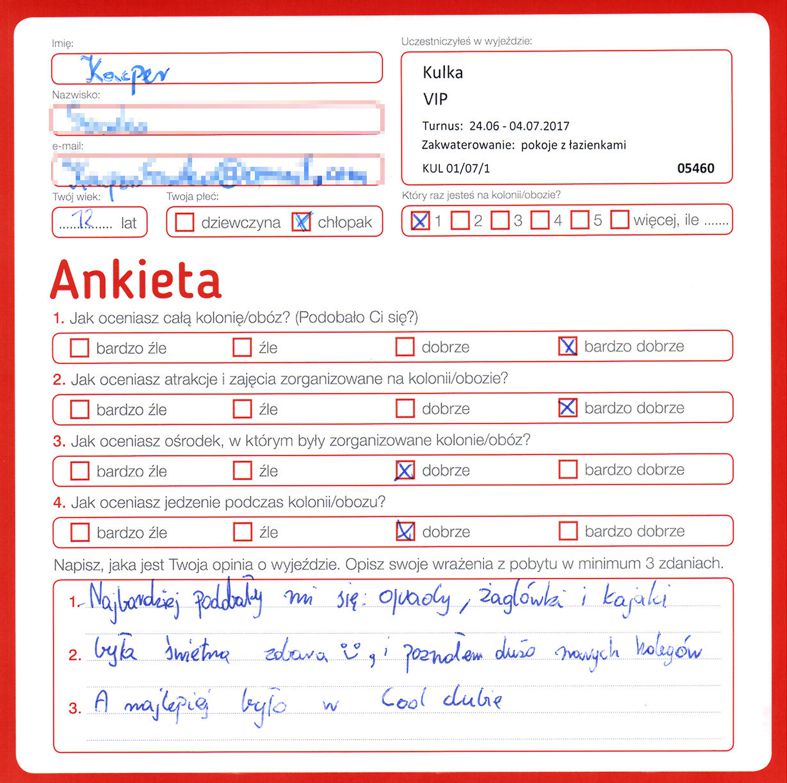 Imię:
Kacper
Nazwisko:
e-mail:
Twój wiek:
12 lat
Twoja płeć:
dziewczyna chłopak
Uczestniczyłeś w wyjeździe:
Kulka
VIP
Turnus: 24.06 - 04.07.2017
Zakwaterowanie: pokoje z łazienkami
KUL 01/07/1 05460
Który raz jesteś na kolonii/obozie?
1 2 3 4 5 więcej, ile .......
Ankieta
1. Jak oceniasz całą kolonię/obóz? (Podobało Ci się?)
bardzo źle źle dobrze bardzo dobrze
2. Jak oceniasz atrakcje i zajęcia zorganizowane na kolonii/obozie?
bardzo źle źle dobrze bardzo dobrze
3. Jak oceniasz ośrodek, w którym były zorganizowane kolonie/obóz?
bardzo źle źle dobrze bardzo dobrze
4. Jak oceniasz jedzenie podczas kolonii/obozu?
bardzo źle źle dobrze bardzo dobrze
Napisz, jaka jest Twoja opinia o wyjeździe. Opisz swoje wrażenia z pobytu w minimum 3 zdaniach.
1. Najbardziej poddobały mi się: , żaglówki i kajaki
2. była świetna zabawa , i poznałem dużo nowych kolegów
3. A najlepiej było w Cool clubie